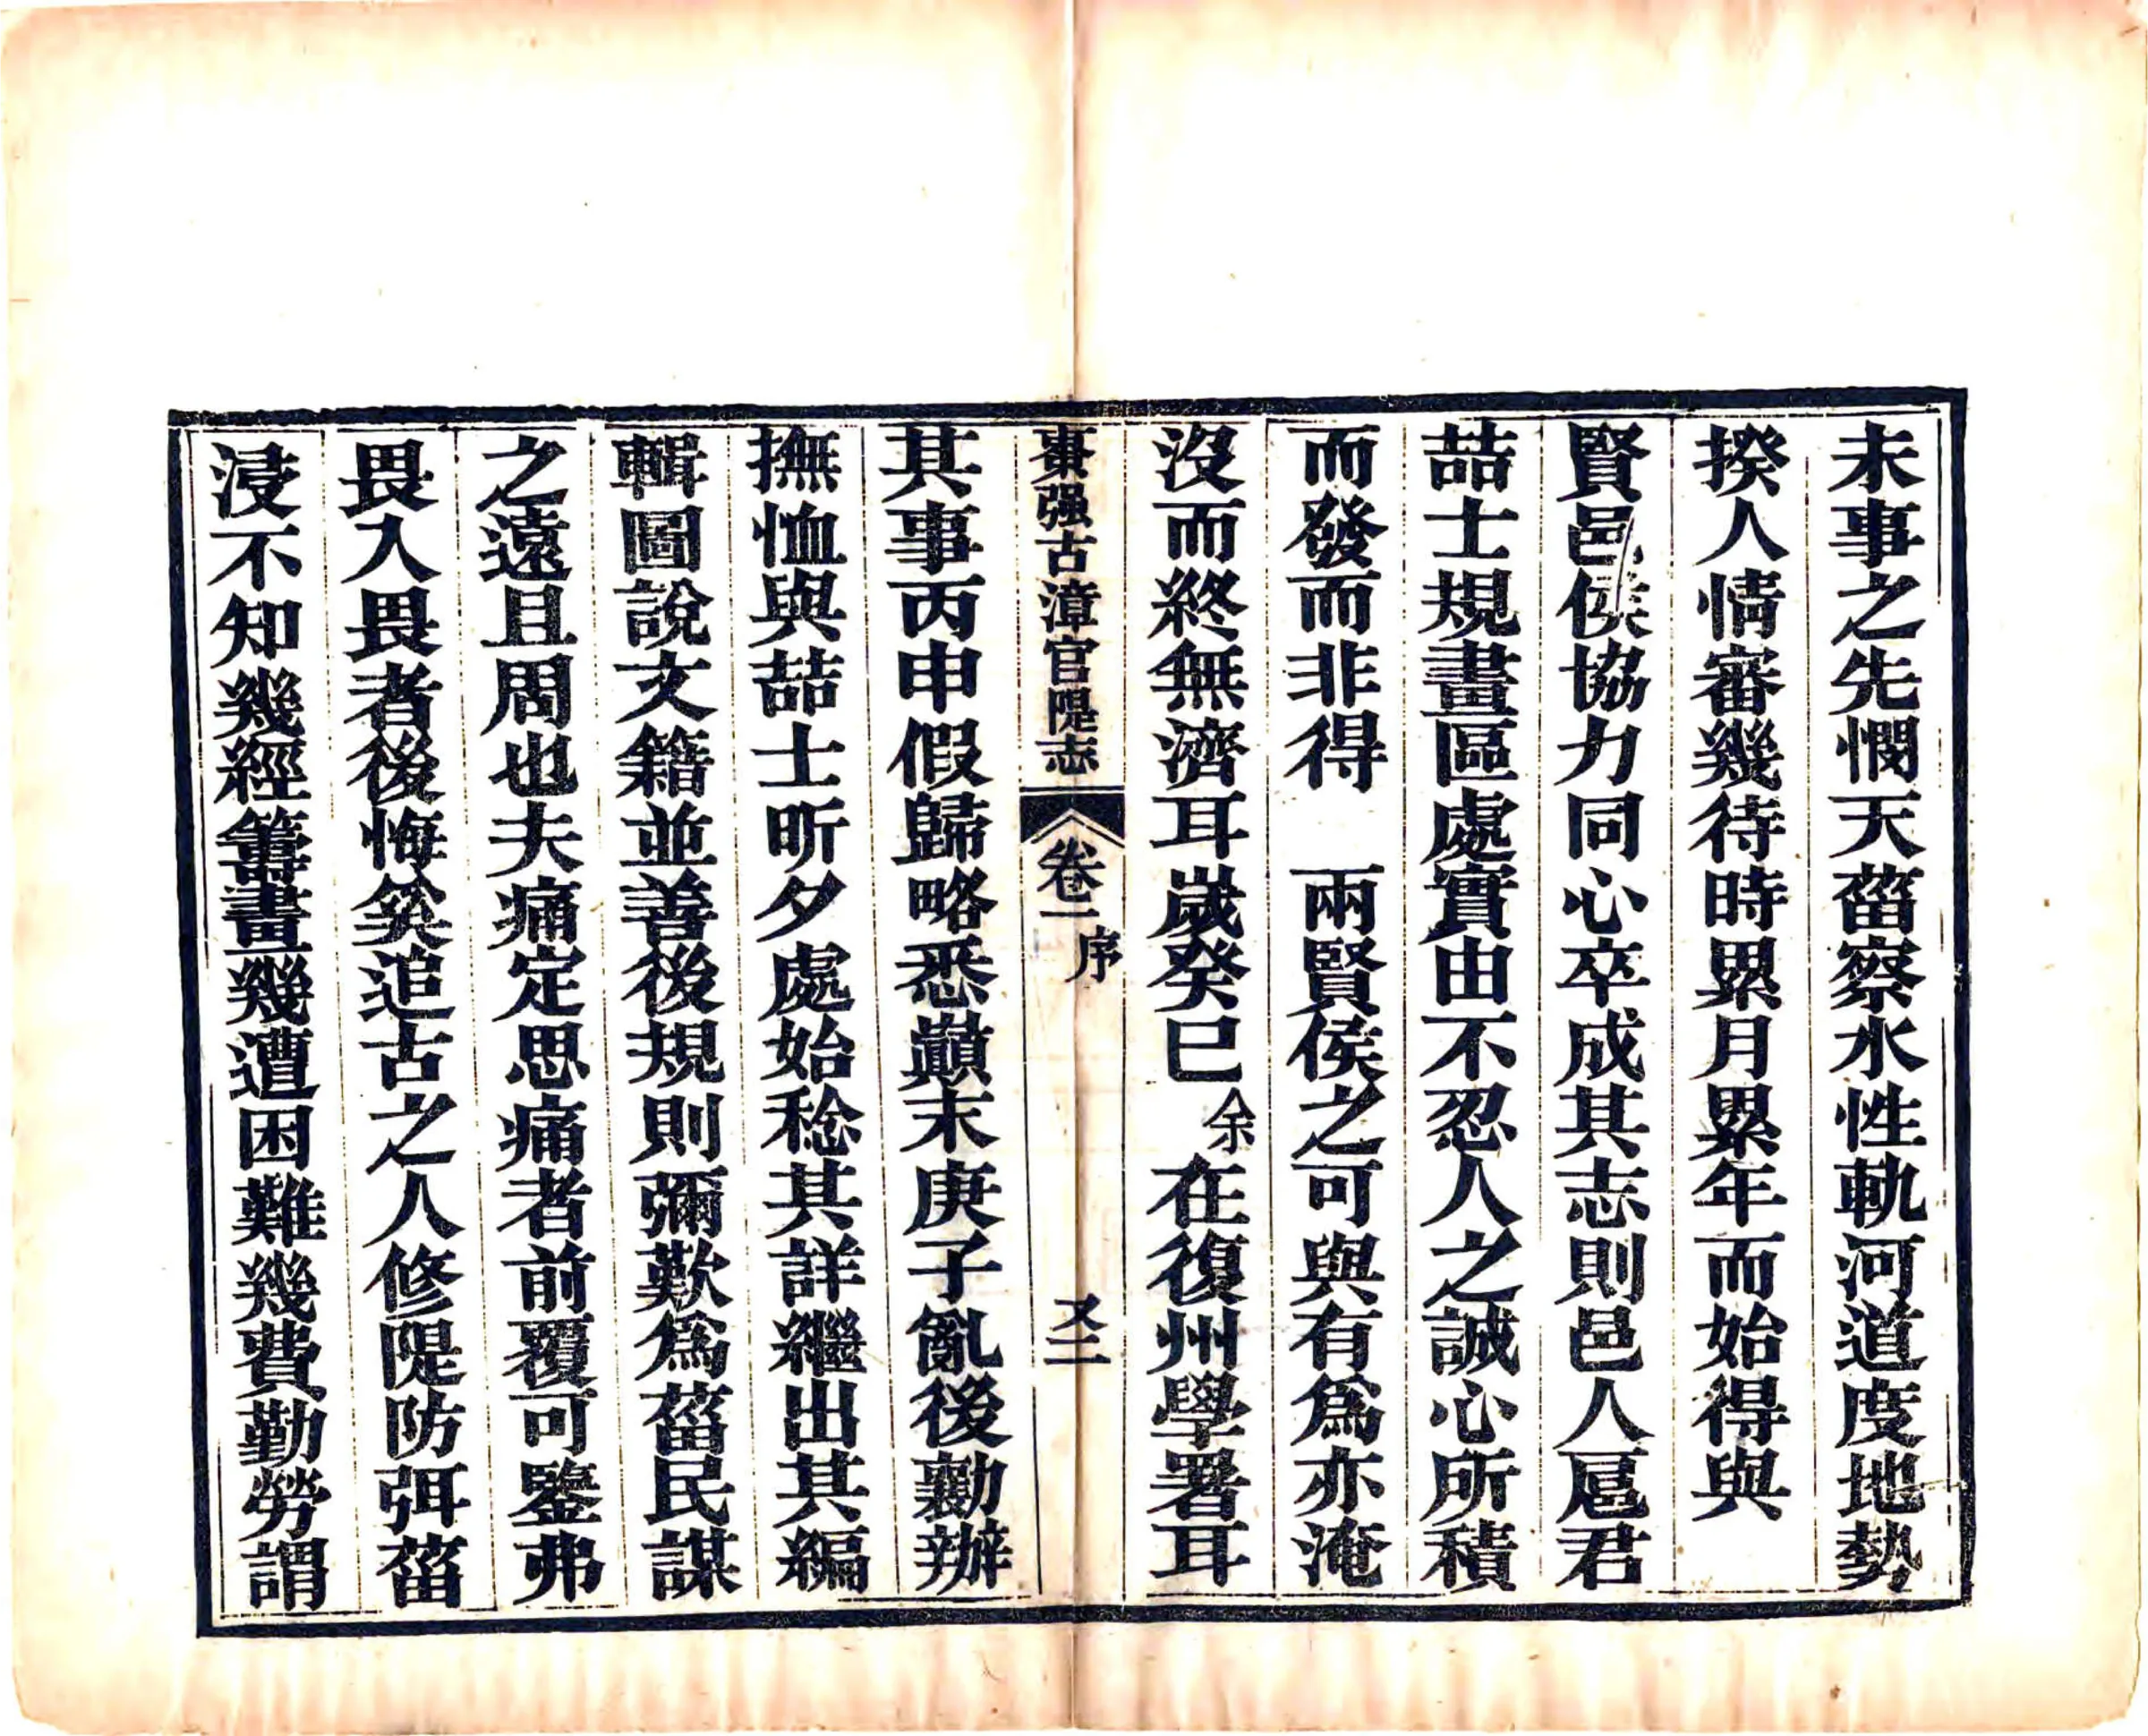 未事之先憫天菑察水性軌河道度地勢
揆人情審幾待時累月累年而始得與
賢邑侯協力同心卒成其志則邑人扈君
喆士規畫區處實由不忍人之誠心所積
而發而非得　兩賢侯之可與有爲亦淹
沒而終無濟耳嵗癸巳余在復州學署耳
棗强古漳官隄志　卷一　序　又二
其事丙申假歸略悉顚末庚子亂後勷辦
撫恤與喆士昕夕處始稔其詳繼出其編
輯圖說文籍並善後規則彌歎爲菑民謀
之遠且周也夫痛定思痛者前覆可鑒弗
畏入畏者後悔奚追古之人修隄防弭菑
浸不知幾經籌畫幾遭困難幾費勤勞謂